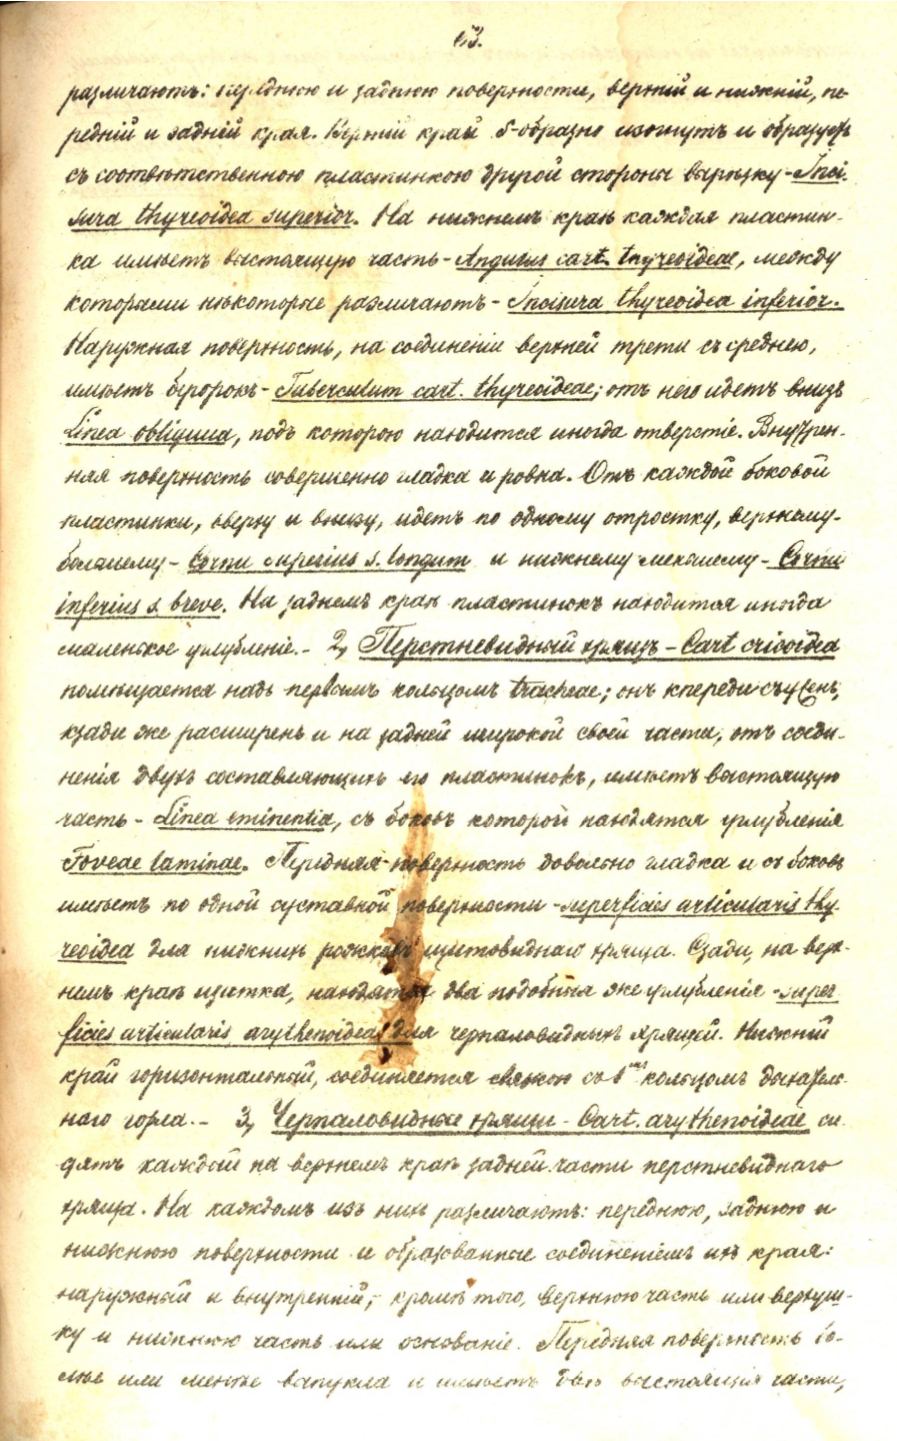 63.
различаютъ: переднюю и заднюю поверхности, верхній и нижній, пе-
редній и задній края. Верхній край S-образно изогнутъ и образуетъ
съ соотвѣтственною пластинкою другой стороны вырѣзку - Inci-
sura thyreoidea superior. На нижнемъ краѣ каждая пластин-
ка имѣетъ выстоящую часть - Angulus cart. thyreoideae, между
которыми нѣкоторые различаютъ - Incisura thyreoidea inferior.
Наружная поверхность, на соединеніи верхней трети съ среднею,
имѣетъ бугорокъ - Tuberculum cart. thyreoideae; отъ него идетъ внизъ
Linea obliqua, подъ которою находится иногда отверстіе. Внутрен-
няя поверхность совершенно гладка и ровна. Отъ каждой боковой
пластинки, вверху и внизу, идетъ по одному отростку, верхнему-
большему - Cornu superius s. longum и нижнему меньшему - Cornu
inferius s. breve. На заднемъ краѣ пластинокъ находится иногда
маленькое углубленіе. - 2, Перстневидный хрящъ - Cart cricoidea
помѣщается надъ первымъ кольцомъ tracheae; онъ кпереди съуженъ,
кзади же расширенъ и на задней широкой своей части, отъ соеди-
ненія двухъ составляющихъ его пластинокъ, имѣетъ выстоящую
часть - Linea eminentia, съ боковъ которой находятся углубленія
Foveae laminae. Передняя поверхность довольно гладка и съ боковъ
имѣетъ по одной суставной поверхности - superficies articularis thy-
reoidea для нижнихъ рожковъ щитовиднаго хряща. Сзади, на верх-
немъ краѣ щитка, находятся два подобныя же углубленія - super-
ficies articularis arythenoideae для черпаловидныхъ хрящей. Нижній
край горизонтальный, соединяется связкою съ 1ымъ кольцомъ дыхатель-
наго горла. - 3, Черпаловидные хрящи - Cart. arythenoideae си-
дятъ каждый на верхнемъ краѣ задней части перстневиднаго
хряща. На каждомъ изъ нихъ различаютъ: переднюю, заднюю и
нижнюю поверхности и образованные соединеніемъ ихъ края:
наружный и внутренній, кромѣ того, верхнюю часть или верхуш-
ку и нижнюю часть или основаніе. Передняя поверхность бо-
лѣе или менѣе выпукла и имѣетъ двѣ выстоящія части,